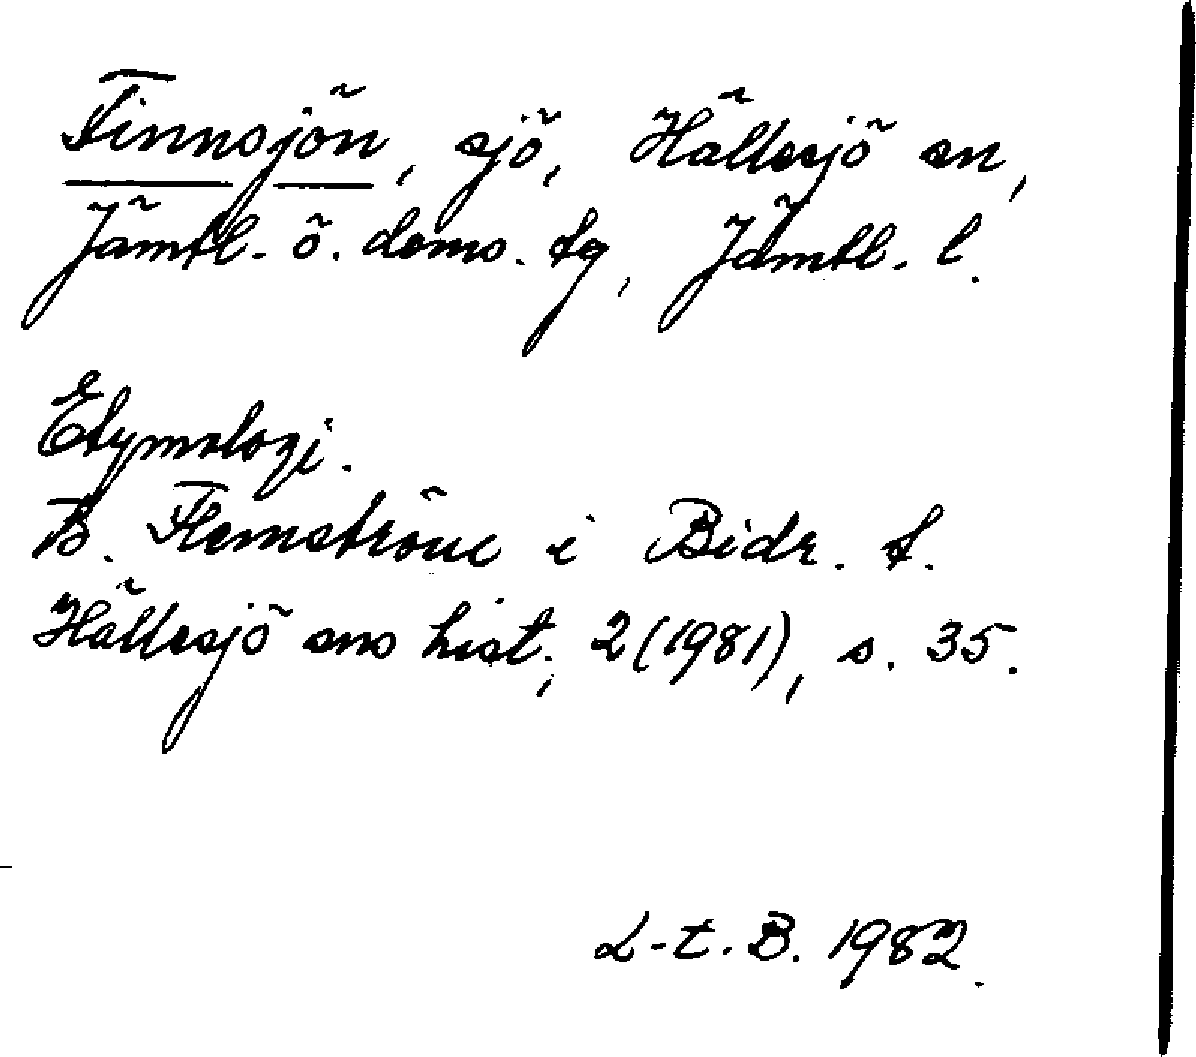 Finnsjön, sjö, Hällesjö sn,
Jämtl. ö. doms. tg, Jämtl. l.
Etymologi.
B. Flemström i Bidr. t.
Hällesjö sns hist., 2(1981), s. 35.
L-t. B. 1982.